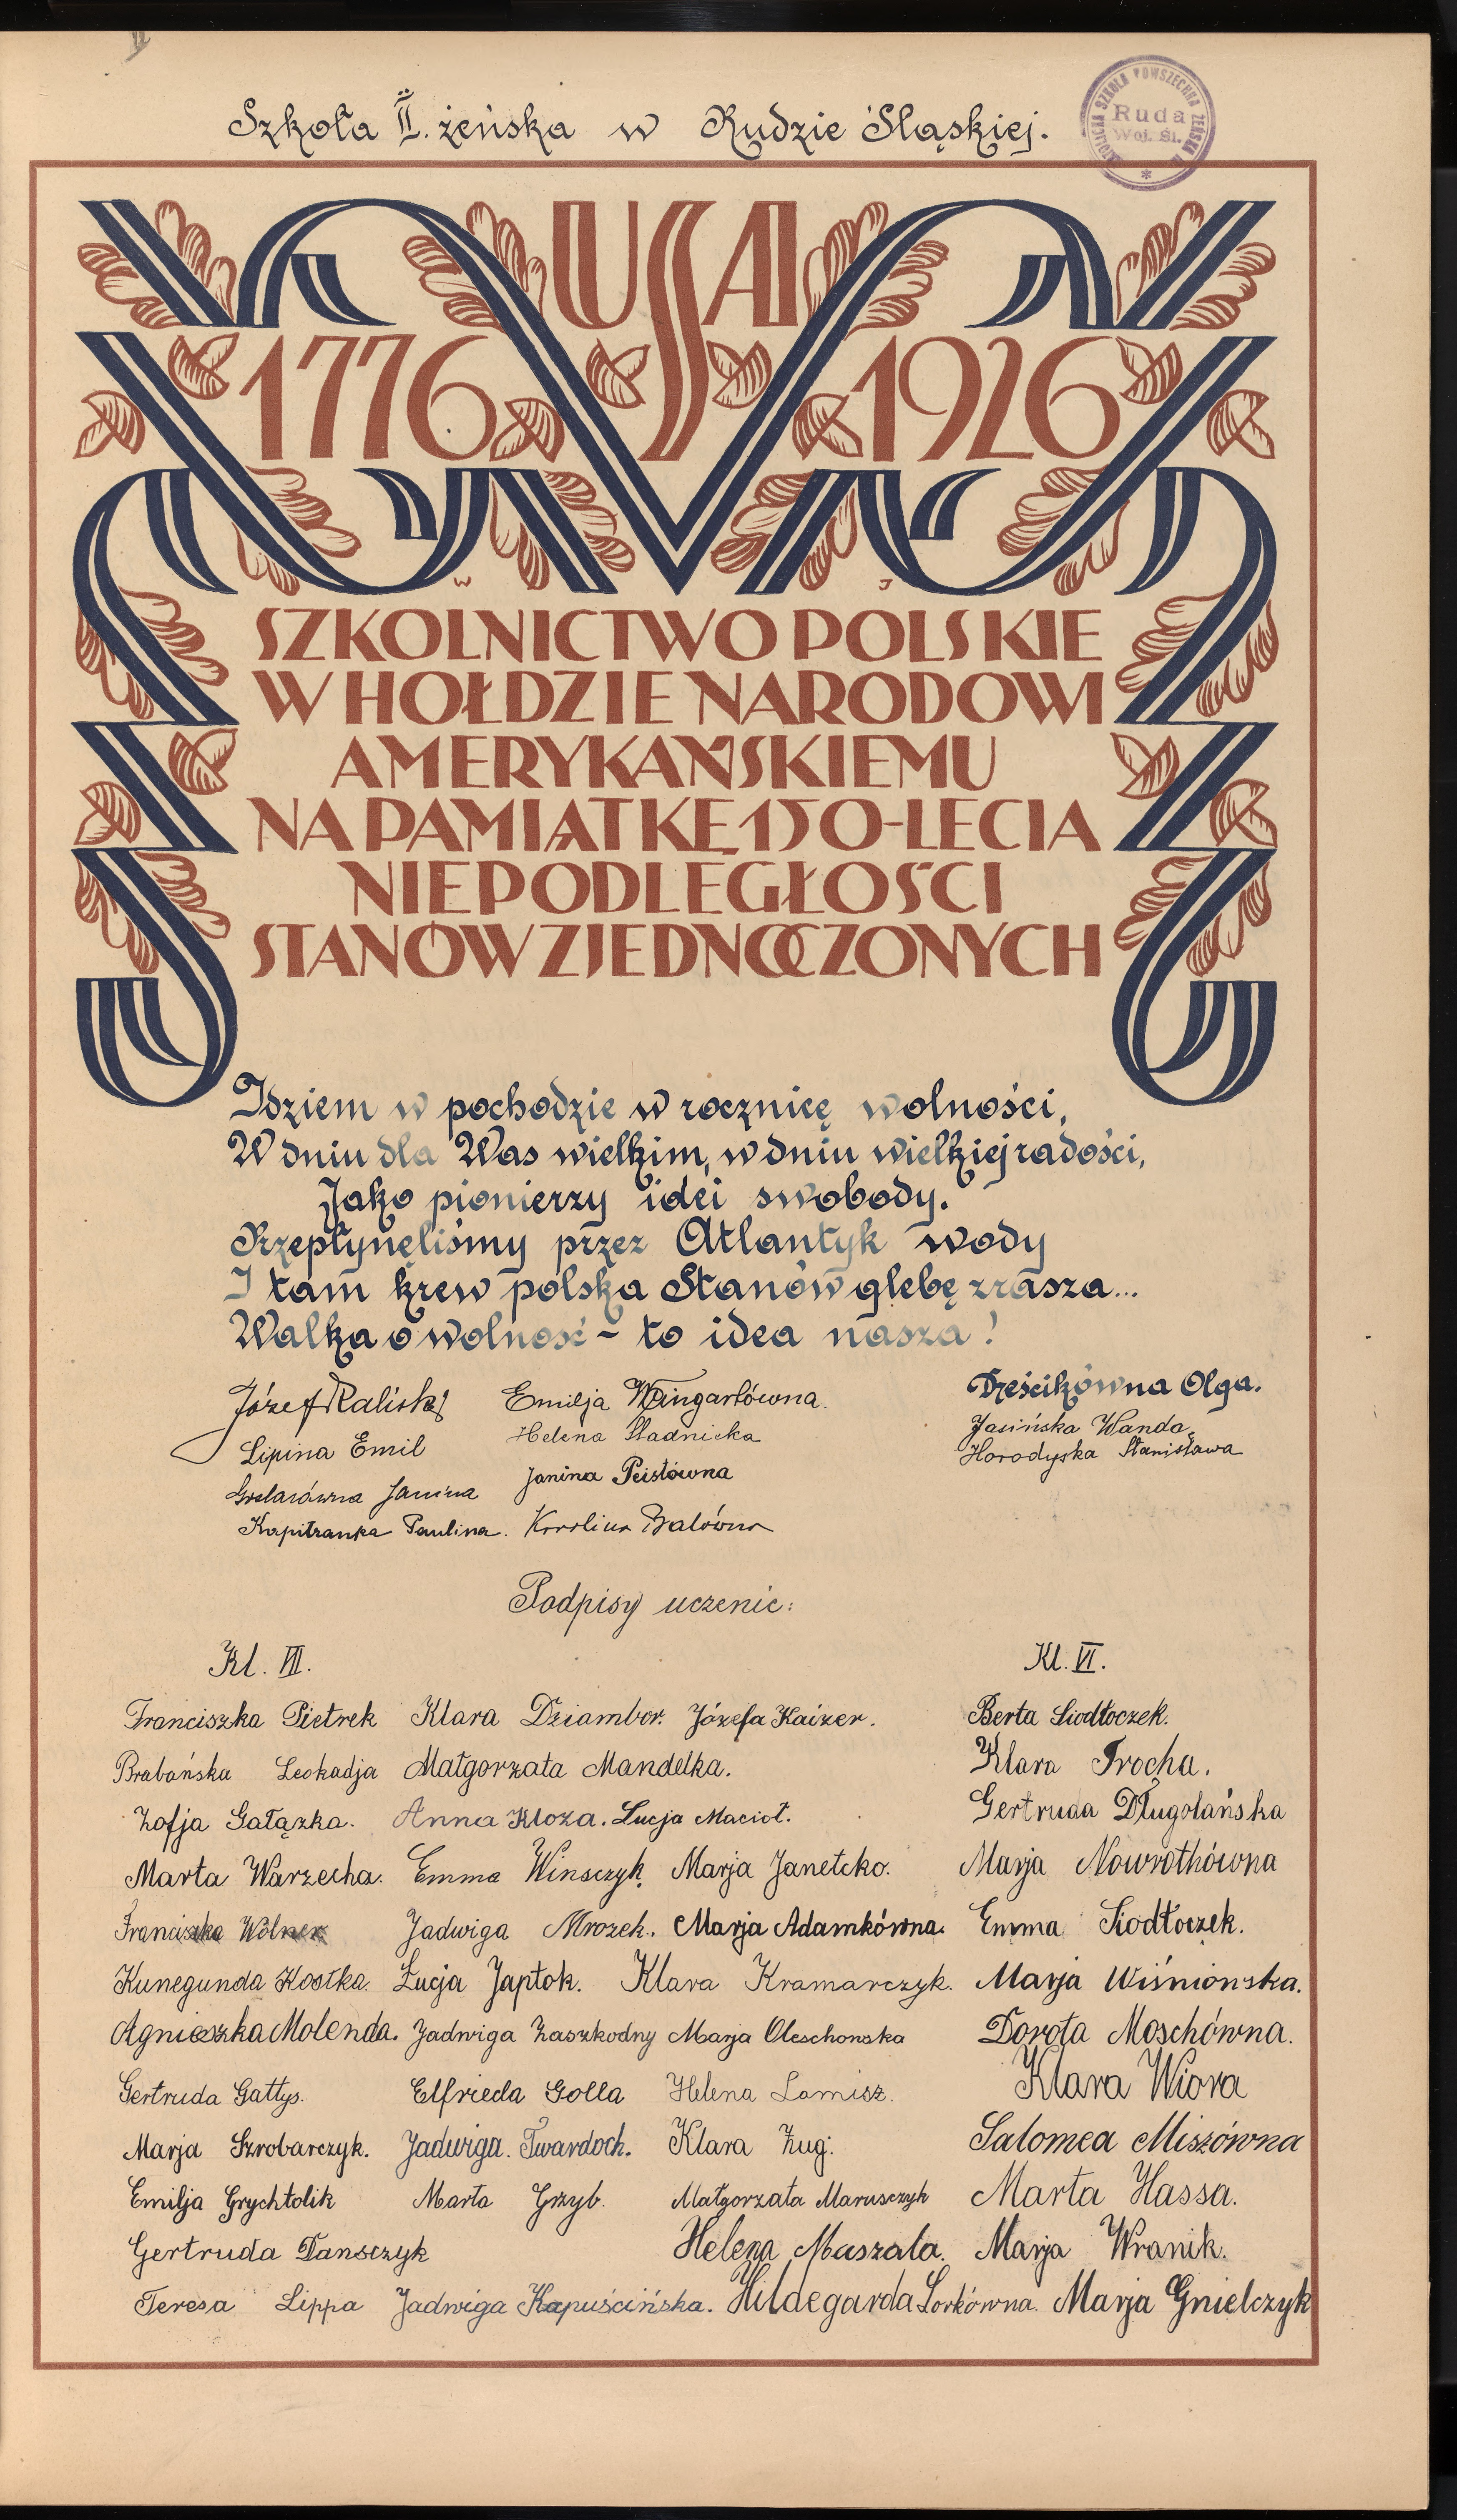 Szkoła II. żeńska w Rudzie Śląskiej.
SZKOŁA POWSZECHNA ŻEŃSKA
Ruda
Woj. Śl.
USA
1776 1926
W J
SZKOLNICTWO POLSKIE
W HOŁDZIE NARODOWI
AMERYKAŃSKIEMU
NA PAMIĄTKĘ 150-LECIA
NIEPODLEGŁOŚCI
STANÓW ZJEDNOCZONYCH
Idziem w pochodzie w rocznicę wolności,
W dniu dla Was wielkim, w dniu wielkiej radości,
Jako pionierzy idei swobody.
Przepłynęliśmy przez Atlantyk wody
I tam krew polska Stanów glebę zrasza...
Walka o wolność - to idea nasza!
Józef Kaliski Emilja Weingartówna. Dześcikówna Olga.
Lipina Emil Helena Sładnicka Jasińska Wanda
Janina Peistówna Horodyska Stanisława
Janina
Kapitzanka Paulina. Karolina Balówna
Podpisy uczenic:
Kl. VII. Kl. VI.
Franciszka Pietrek Klara Dziambor. Józefa Kaizer. Berta Siodłoczek.
Brabańska Leokadja Małgorzata Mandelka. Klara Trocha.
Zofja Gałązka. Anna Kloza. Łucja Macioł. Gertruda Długolańska
Marta Warzecha. Emma Winsczyk. Marja Janetcko. Marja Nowrothówna
Franciszka Jadwiga Mrozek. Marja Adamkówna. Emma Siodłoczek.
Kunegunda Kostka. Łucja Japtok. Klara Kramarczyk. Marja Wiśniowska.
Agnieszka Molenda. Jadwiga Zaszkodny Marja Oleschowska Dorota Moschówna.
Gertruda Gattys. Elfrieda Golla Helena Lamisz. Klara Wiora
Marja Szrobarczyk. Jadwiga Twardoch. Klara Żug. Salomea Miszówna
Emilja Grychtolik Marta Grzyb. Małgorzata Marusczyk Marta Hassa.
Gertruda Tansczyk Helena Maszala. Marja Wranik.
Teresa Lippa Jadwiga Kapuścińska. Hildegarda Lorkówna. Marja Gnielczyk